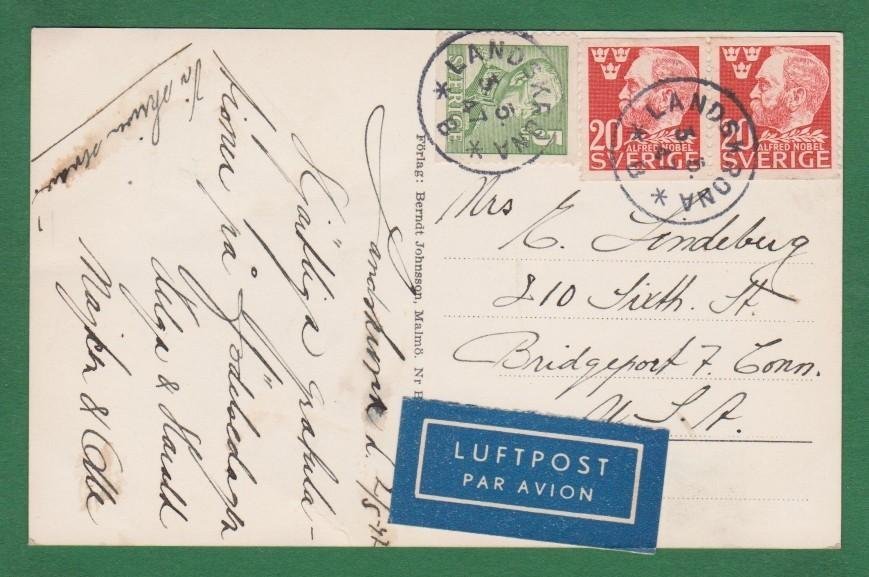 Landskrona d. 2/5-47
Hjärtliga gratula-
tioner på födelsedagen
Helga & Harald
Majken & Olle
Förlag: Berndt Johnsson, Malmö. Nr
SVERIGE 5
LANDSKRONA
3 5
47
* B *
20
ALFRED NOBEL
SVERIGE
20
ALFRED NOBEL
SVERIGE
LANDSKRONA
3 5
47
* B *
Mrs
E. Lindeberg
210 Sixth. St.
Bridgeport 7. Conn.
U.S.A.
LUFTPOST
PAR AVION